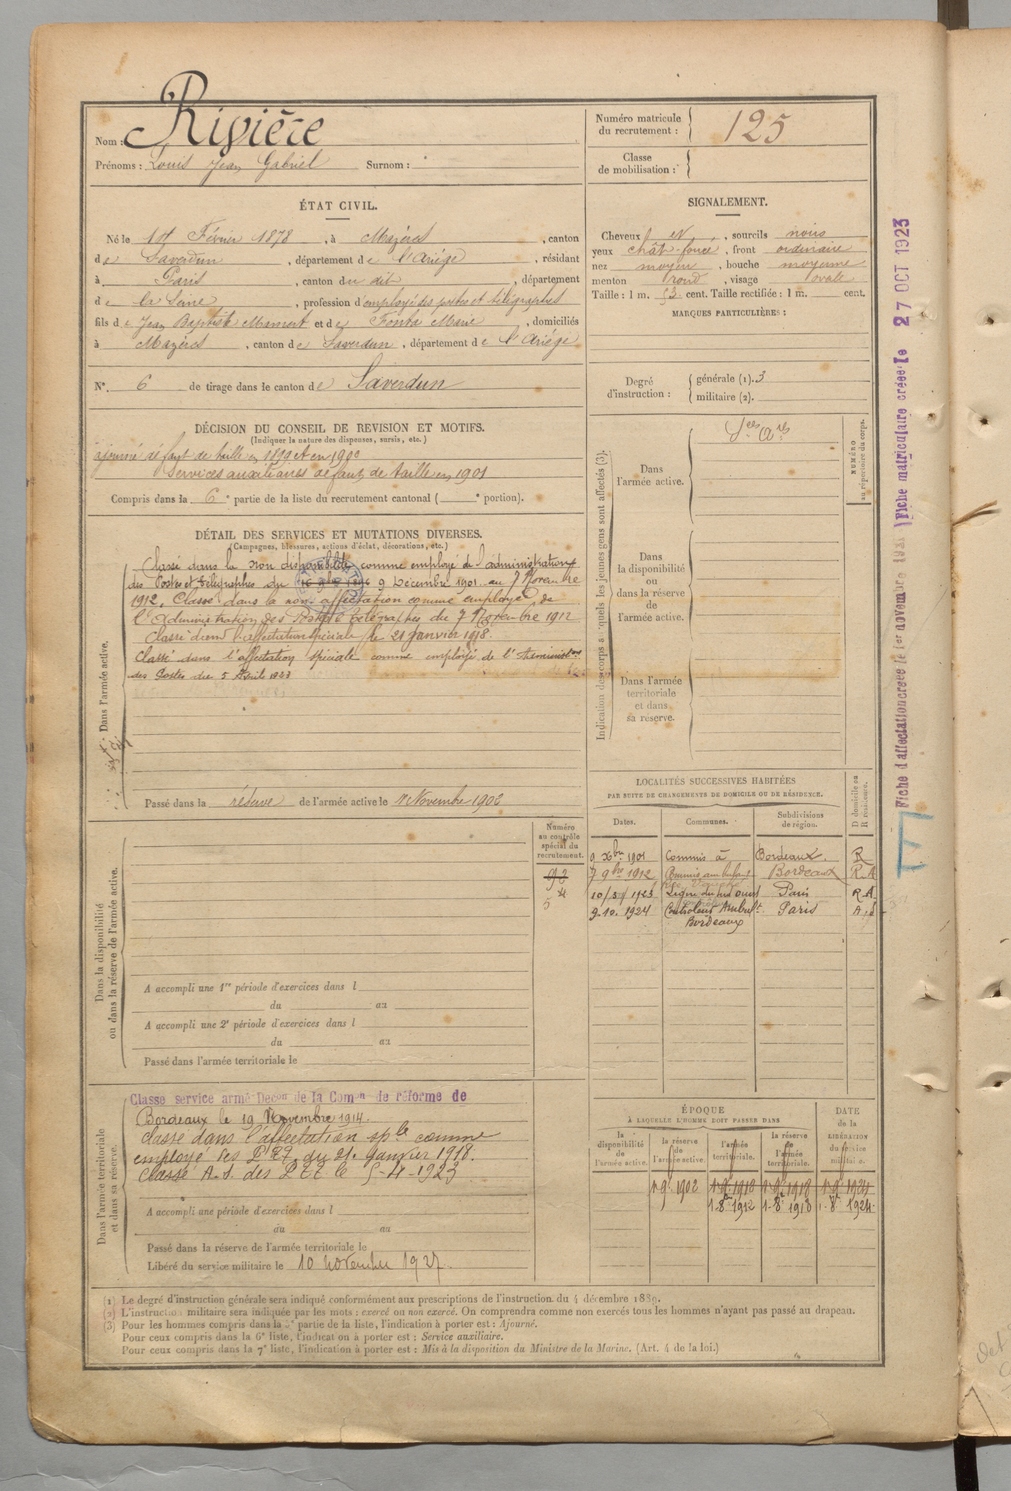 Nom : Rivière
Prénoms : Louis Jean Gabriel Surnom :
ÉTAT CIVIL.
Né le Février 1878, à Mazères, canton
de Saverdun, département de l'Ariège, résidant
à Paris, canton du dit, département
de la Seine, profession d'employé des postes et télégraphes
fils de Jean Baptiste et de Fonta Marie, domiciliés
à Mazères, canton de Saverdun, département de l'Ariège
N°. 6 de tirage dans le canton de Saverdun
DÉCISION DU CONSEIL DE REVISION ET MOTIFS.
(Indiquer la nature des dispenses, sursis, etc.)
ajourné déft de taille en 1899 et en 1900
Services auxiliaires défaut de taille en 1901
Compris dans la 6e partie de la liste du recrutement cantonal ( e portion).
DÉTAIL DES SERVICES ET MUTATIONS DIVERSES.
(Campagnes, blessures, actions d'éclat, décorations, etc.)
Dans l'armée active.
Classé dans la non disponibilité comme employé de l'administration
des Postes et Télégraphes du 9 Décembre 1901 au 7 Novembre
1912. Classé dans la non affectation comme employé de
l'Administration des Postes et Télégraphes du 7 Novembre 1912
Classé dans l'affectation spéciale le 21 Janvier 1918.
Classé dans l'affectation spéciale comme employé de l'Administon
des Postes du 5 Avril 1923
Passé dans la réserve de l'armée active le 1 Novembre 1902
Dans la disponibilité
ou dans la réserve de l'armée active.
Numéro
au contrôle
spécial du
recrutement.
93
4
5
A accompli une 1re période d'exercices dans l
du au
A accompli une 2e période d'exercices dans l
du au
Passé dans l'armée territoriale le
Dans l'armée territoriale
et dans sa réserve.
Classe service armé Decon de la Comon de réforme de
Bordeaux le 19 Novembre 1914.
Classé dans l'affectation sple comme
employé des PTT du 21 Janvier 1918.
Classé A.S. des PTT le 5-4-1923
A accompli une période d'exercices dans l
du au
Passé dans la réserve de l'armée territoriale le
Libéré du service militaire le 10 novembre 1927.
Numéro matricule
du recrutement : 125
Classe
de mobilisation :
SIGNALEMENT.
Cheveux N, sourcils noirs
yeux chât-foncé, front ordinaire
nez moyen, bouche moyenne
menton rond, visage ovale
Taille : 1 m. 53 cent. Taille rectifiée : 1 m. cent.
MARQUES PARTICULIÈRES :
Degré
d'instruction :
générale (1). 3
militaire (2).
Indication des corps auxquels les jeunes gens sont affectés (3).
NUMÉRO
au répertoire du corps.
Dans
l'armée active.
Dans
la disponibilité
ou
dans la réserve
de
l'armée active.
Dans l'armée
territoriale
et dans
sa réserve.
LOCALITÉS SUCCESSIVES HABITÉES
PAR SUITE DE CHANGEMENTS DE DOMICILE OU DE RÉSIDENCE.
Dates. Communes. Subdivisions
de région.
D domicile ou
R résidence.
9 Xbre 1901 Commis à Bordeaux. R
7 9bre 1912 Bordeaux R.A
Paris R.A.
9-10. 1924 Contrôleur Ambult Paris
Bordeaux
ÉPOQUE
À LAQUELLE L'HOMME DOIT PASSER DANS
DATE
de la
LIBÉRATION
du service
militaire.
la
disponibilité
de
l'armée active.
la réserve
de
l'armée active.
l'armée
territoriale.
la réserve
de
l'armée
territoriale.
1.9.1902 1.9.1918 1.9.1918 1.9.1924
1.8e 1912 1.8e 1918 1.8e 1924
(1) Le degré d'instruction générale sera indiqué conformément aux prescriptions de l'instruction du 4 décembre 1889.
(2) L'instruction militaire sera indiquée par les mots : exercé ou non exercé. On comprendra comme non exercés tous les hommes n'ayant pas passé au drapeau.
(3) Pour les hommes compris dans la 5e partie de la liste, l'indication à porter est : Ajourné.
Pour ceux compris dans la 6e liste, l'indication à porter est : Service auxiliaire.
Pour ceux compris dans la 7e liste, l'indication à porter est : Mis à la disposition du Ministre de la Marine. (Art. 4 de la loi.)
Fiche d'affectation créée le 1er novembre 1921 Fiche matriculaire créée le 27 OCT 1923